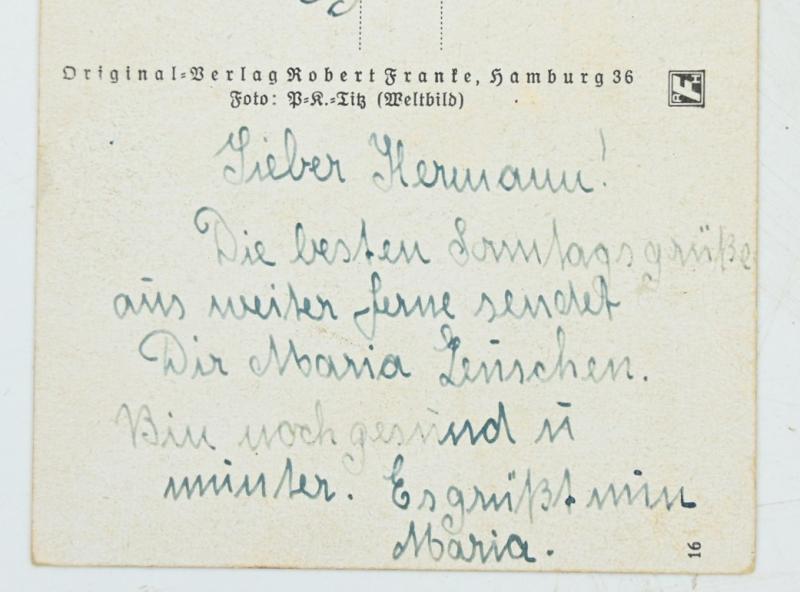 Original-Verlag Robert Franke, Hamburg 36
Foto: P-K.-Titz (Weltbild)
Lieber Hermann!
Die besten Sonntagsgrüße
aus weiter Ferne sendet
Dir Maria Leuschen.
Bin noch gesund u
munter. Es grüßt nun
Maria.
16